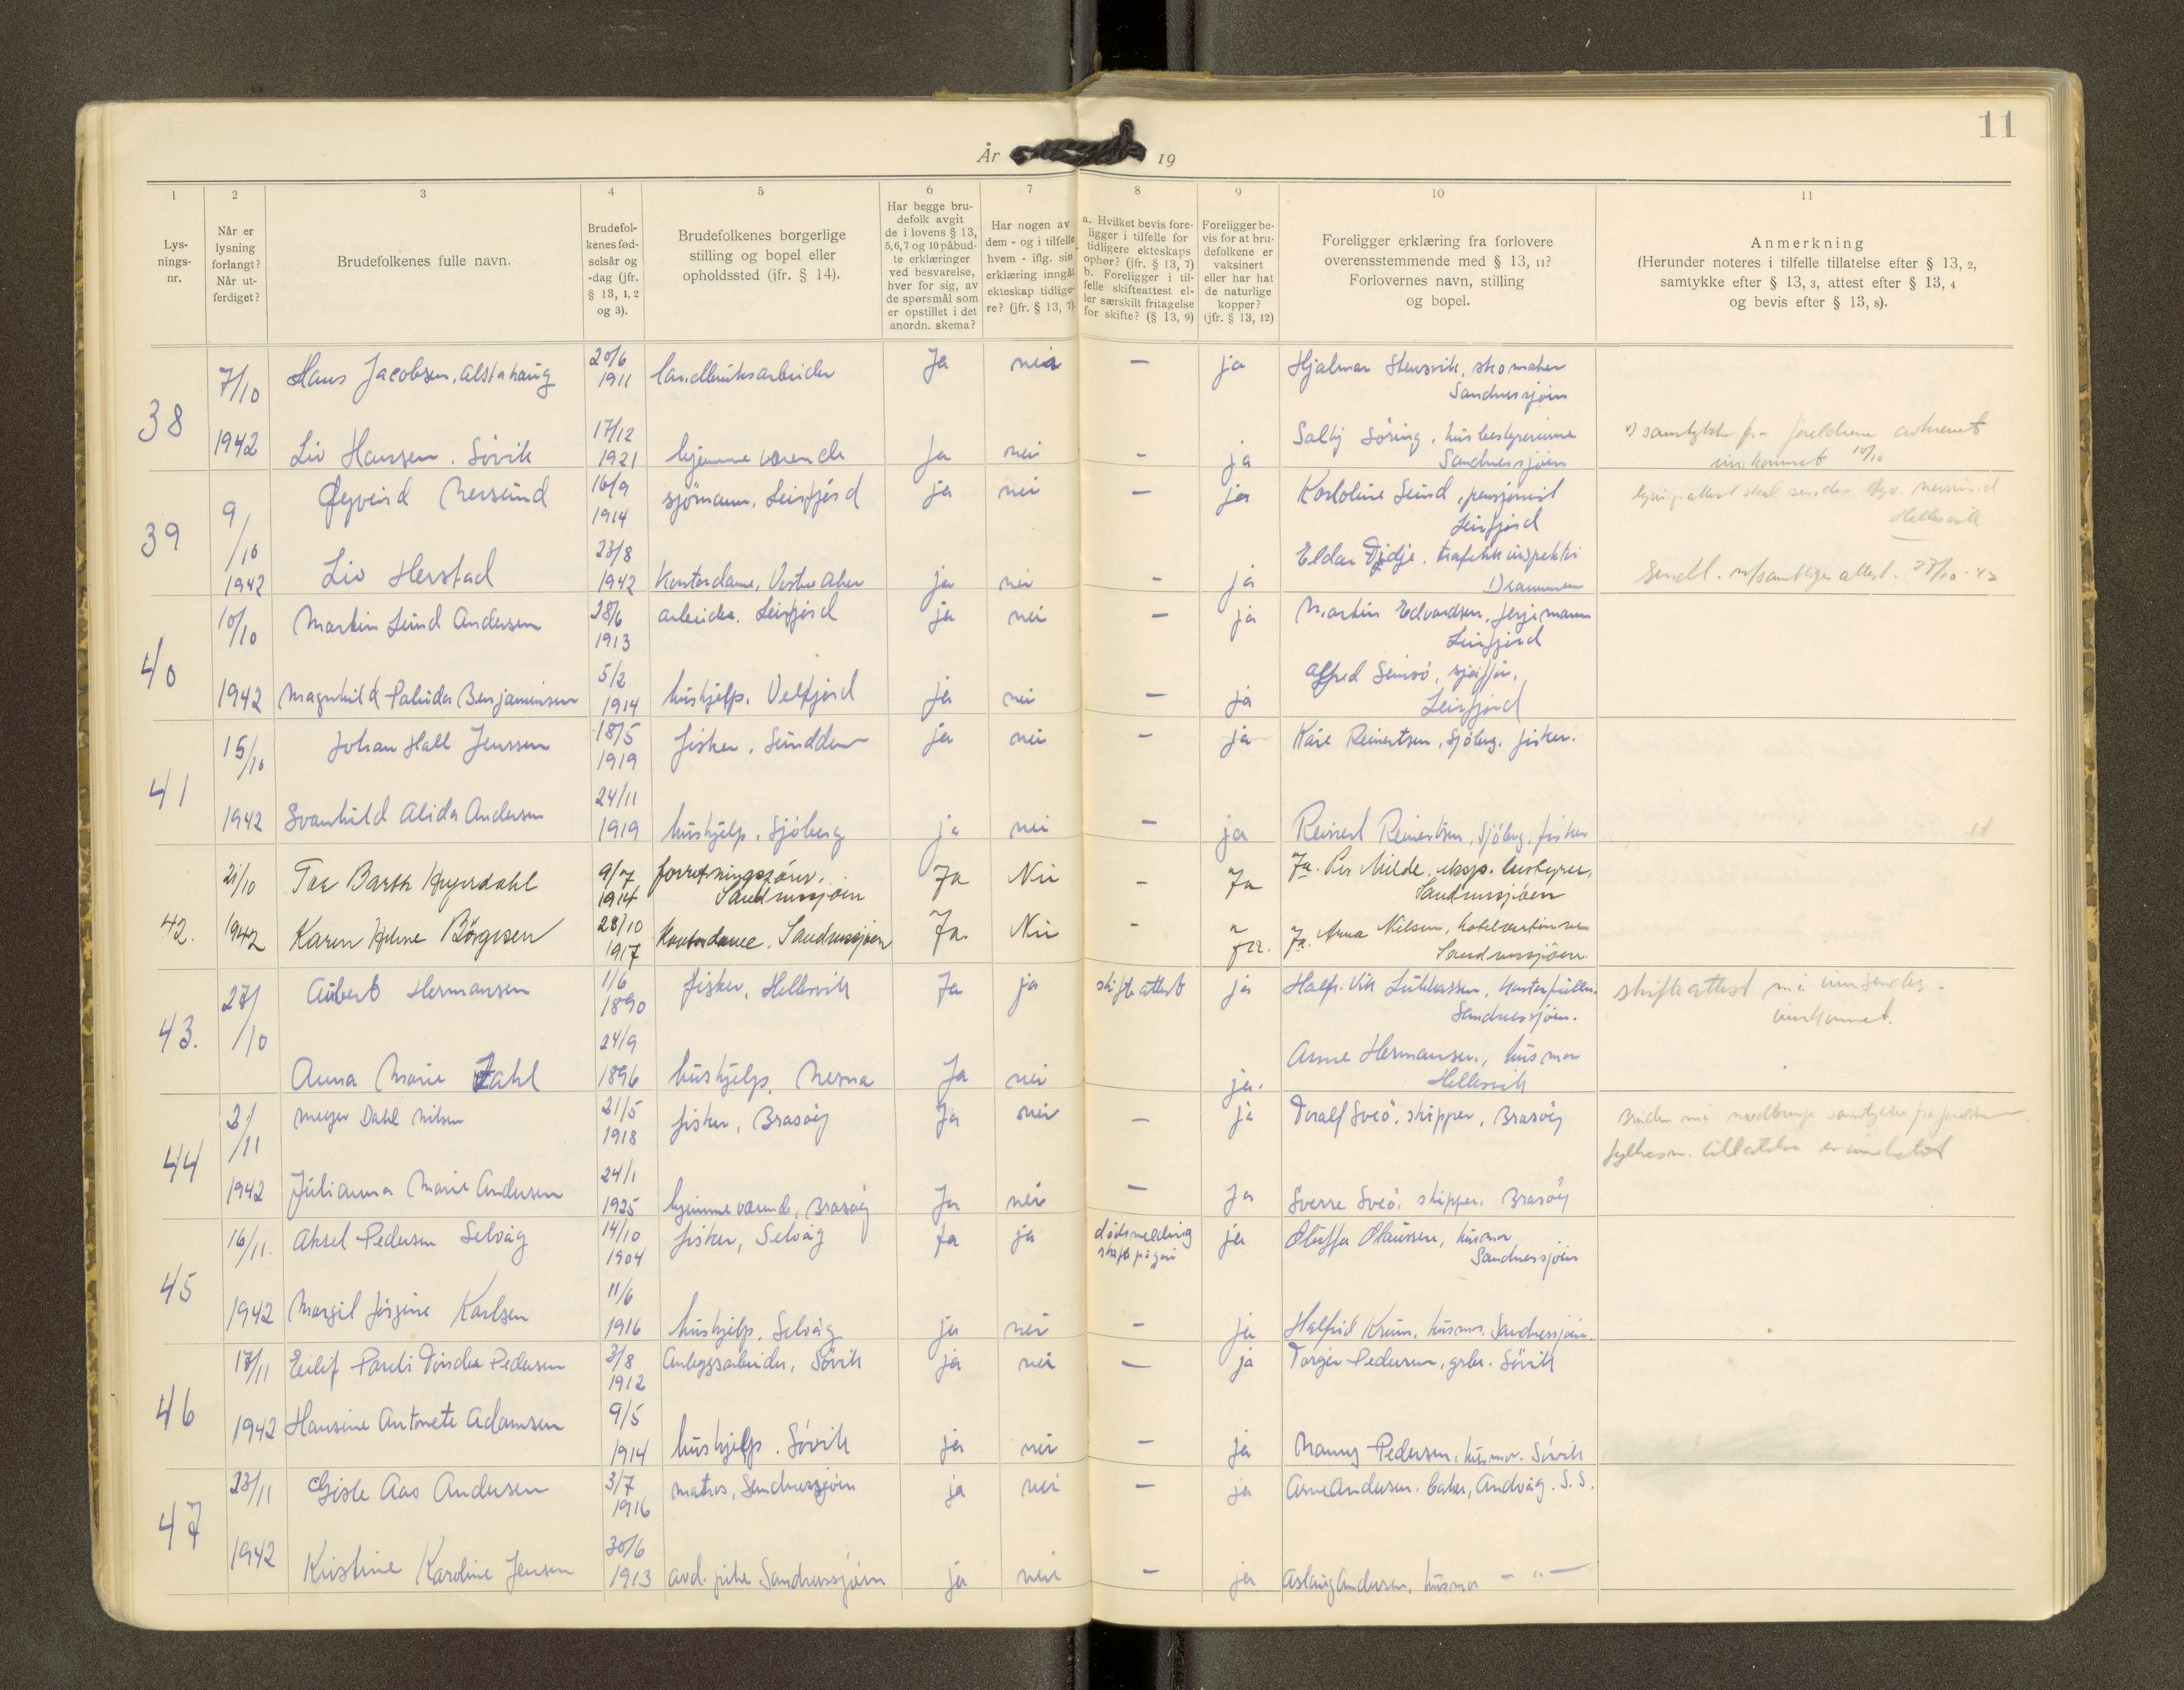 11
År 19
1 2 3 4 5 6 7 8 9 10 11
Lys-
nings-
nr.
Når er
lysning
forlangt?
Når ut-
ferdiget?
Brudefolkenes fulle navn.
Brudefol-
kenes fød-
selsår og
-dag (jfr.
§ 13, 1, 2
og 3).
Brudefolkenes borgerlige
stilling og bopel eller
opholdssted (jfr. § 14).
Har begge bru-
defolk avgit
de i lovens § 13,
5,6,7 og 10 påbud-
te erklæringer
ved besvarelse,
hver for sig, av
de spørsmål som
er opstillet i det
anordn. skema?
Har nogen av
dem - og i tilfelle
hvem - iflg. sin
erklæring inngåt
ekteskap tidlige-
re? (jfr. § 13, 7)
a. Hvilket bevis fore-
ligger i tilfelle for
tidligere ekteskaps
ophør? (jfr. § 13, 7)
b. Foreligger i til-
felle skifteattest el-
ler særskilt fritagelse
for skifte? (§ 13, 9)
Foreligger be-
vis for at bru-
defolkene er
vaksinert
eller har hat
de naturlige
kopper?
(jfr. § 13, 12)
Foreligger erklæring fra forlovere
overensstemmende med § 13, 11?
Forlovernes navn, stilling
og bopel.
Anmerkning
(Herunder noteres i tilfelle tillatelse efter § 13, 2,
samtykke efter § 13, 3, attest efter § 13, 4
og bevis efter § 13, 8).
38 7/10 Hans Jacobsen, Alstahaug 20/6 1911 landbruksarbeider Ja nei — ja Hjalmar Stensvik, skomaker
Sandnessjøen
1942 Liv Hansen. Søvik 17/12 1921 hjemmeværende Ja nei - ja Søring, husbestyrerinne
Sandnessjøen
samtykke fra foreldrene
innkommet 10/10
39 9/10 Øyvind Mersund 16/9 1914 sjømann, Leirfjord ja nei — ja Karoline Lund, pensjonist
Leirfjord
Hellesvik
1942 Liv Herstad 23/8 1942 Kontordame, Vestre Aker ja nei - ja Eldar trafikkinspektør
Drammen
Sendt. m/samtlige attest. 27/10-42
40 10/10 Martin Lund Andersen 28/6 1913 arbeider. Leirfjord ja nei — ja Martin Edvardsen, ferjemann
Leirfjord
1942 Magnhild Palida Benjaminsen 5/2 1914 hushjelp. Velfjord ja nei — ja Alfred sjåfør,
Leirfjord
41 15/10 Johan Hall Jenssen 18/5 1919 fisker, ja nei - ja Kåre Reinertsen, Sjøberg, fisker.
1942 Svanhild Alida Andersen 24/11 1919 hushjelp, Sjøberg ja nei — ja Reinert Reinertsen, Sjøberg, fisker
42. 21/10 Tor Barth 9/7 1914 forretningsfører, Sandnessjøen Ja Nei - Ja Ja. Per Milde, eksp. bestyrer,
Sandnessjøen
1942 Karen Helene Börgesen 28/10 1917 Kontordame, Sandnessjøen Ja. Nei - Ja. Ja. Anna Nilsen, hotelvertinne
Sandnessjøen.
43. 27/10 Aubert Hermansen 1/6 1890 fisker, Hellesvik Ja ja skifteattest ja Vik
Sandnessjøen.
skifteattest må innsendes.
innkommet.
Anna Marie Zahl 24/9 1896 hushjelp, Nesna Ja nei ja. Anne Hermansen, husmor
Hellesvik
44 3/11 Meyer Dahl Nilsen 21/5 1918 fisker, Brasøy Ja nei — ja Toralf Sveø, skipper, Brasøy
Bruden må medbringe samtykke fra foreldre
fylkesm. tillatelse er innhentet
1942 Julianna Marie Andersen 24/1 1925 hjemmeværende, Brasøy Ja nei — Ja Sverre Sveø, skipper. Brasøy
45 16/11. Aksel Pedersen Selvåg 14/10 1904 fisker, Selvåg Ja ja dødsmelding
skifte pågår ja Oluffa Olaussen, husmor
Sandnessjøen
1942 Margit Jørgine Karlsen 11/6 1916 hushjelp, Selvåg ja nei — ja Halfrid husmor. Sandnessjøen.
46 17/11 Eilif Pareli Pedersen 3/8 1912 Anleggsarbeider, Søvik ja nei — ja Torger Pedersen, grbr. Søvik
1942 Hansine Antonete Adamsen 9/5 1914 hushjelp. Søvik ja nei — ja Nanny Pedersen, husmor. Søvik
47 23/11 Gisle Aas Andersen 3/7 1916 matros, Sandnessjøen ja nei — ja Arne Andersen. baker, Andvåg. S.S.
1942 Kristine Karoline Jensen 30/6 1913 avd. pike Sandnessjøen ja nei — ja Aslaug Andersen, husmor — " —